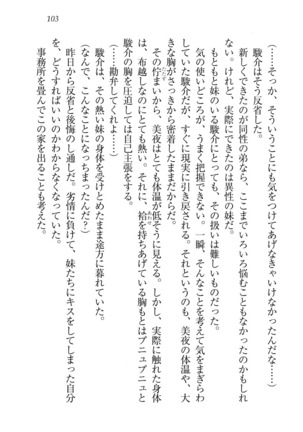 103
（……そっか、そういうことにも気をつけてあげなきゃいけなかったんだな……）
駿介はそう反省した。
新しくできたのが同性の弟なら、ここまでいろいろ悩むこともなかったのかもしれ
ない。けれど、実際にできたのは異性の妹だ。
もともと妹のいる駿介にとっても、その扱いは難しいものだった。
気の使いどころが、うまく把握できない。一瞬、そんなことを考えて気をまぎらわ
していた駿介だが、すぐに現実に引き戻される。それというのも、美夜の体温や、大
きな胸がさっきから密着したままだからだ。
その佇まいから、美夜はとても体温が低そうに見える。しかし、実際に触れた身体
は、布越しなのにとても熱い。それに、袷を持ちあげている胸もとはプニュプニュと
駿介の胸を圧迫しては自己主張をする。
（……勘弁してくれよ……）
駿介は、その熱い妹の身体を受けとめたまま途方に暮れていた。
（なんで、こんなことになっちまったんだ？）
昨日から反省と後悔のし通しだ。劣情に負けて、妹たちにキスをしてしまった自分
を、どうすればいいのかわからなくなっていた。
事務所を畳んでこの家を出ることも考えた。